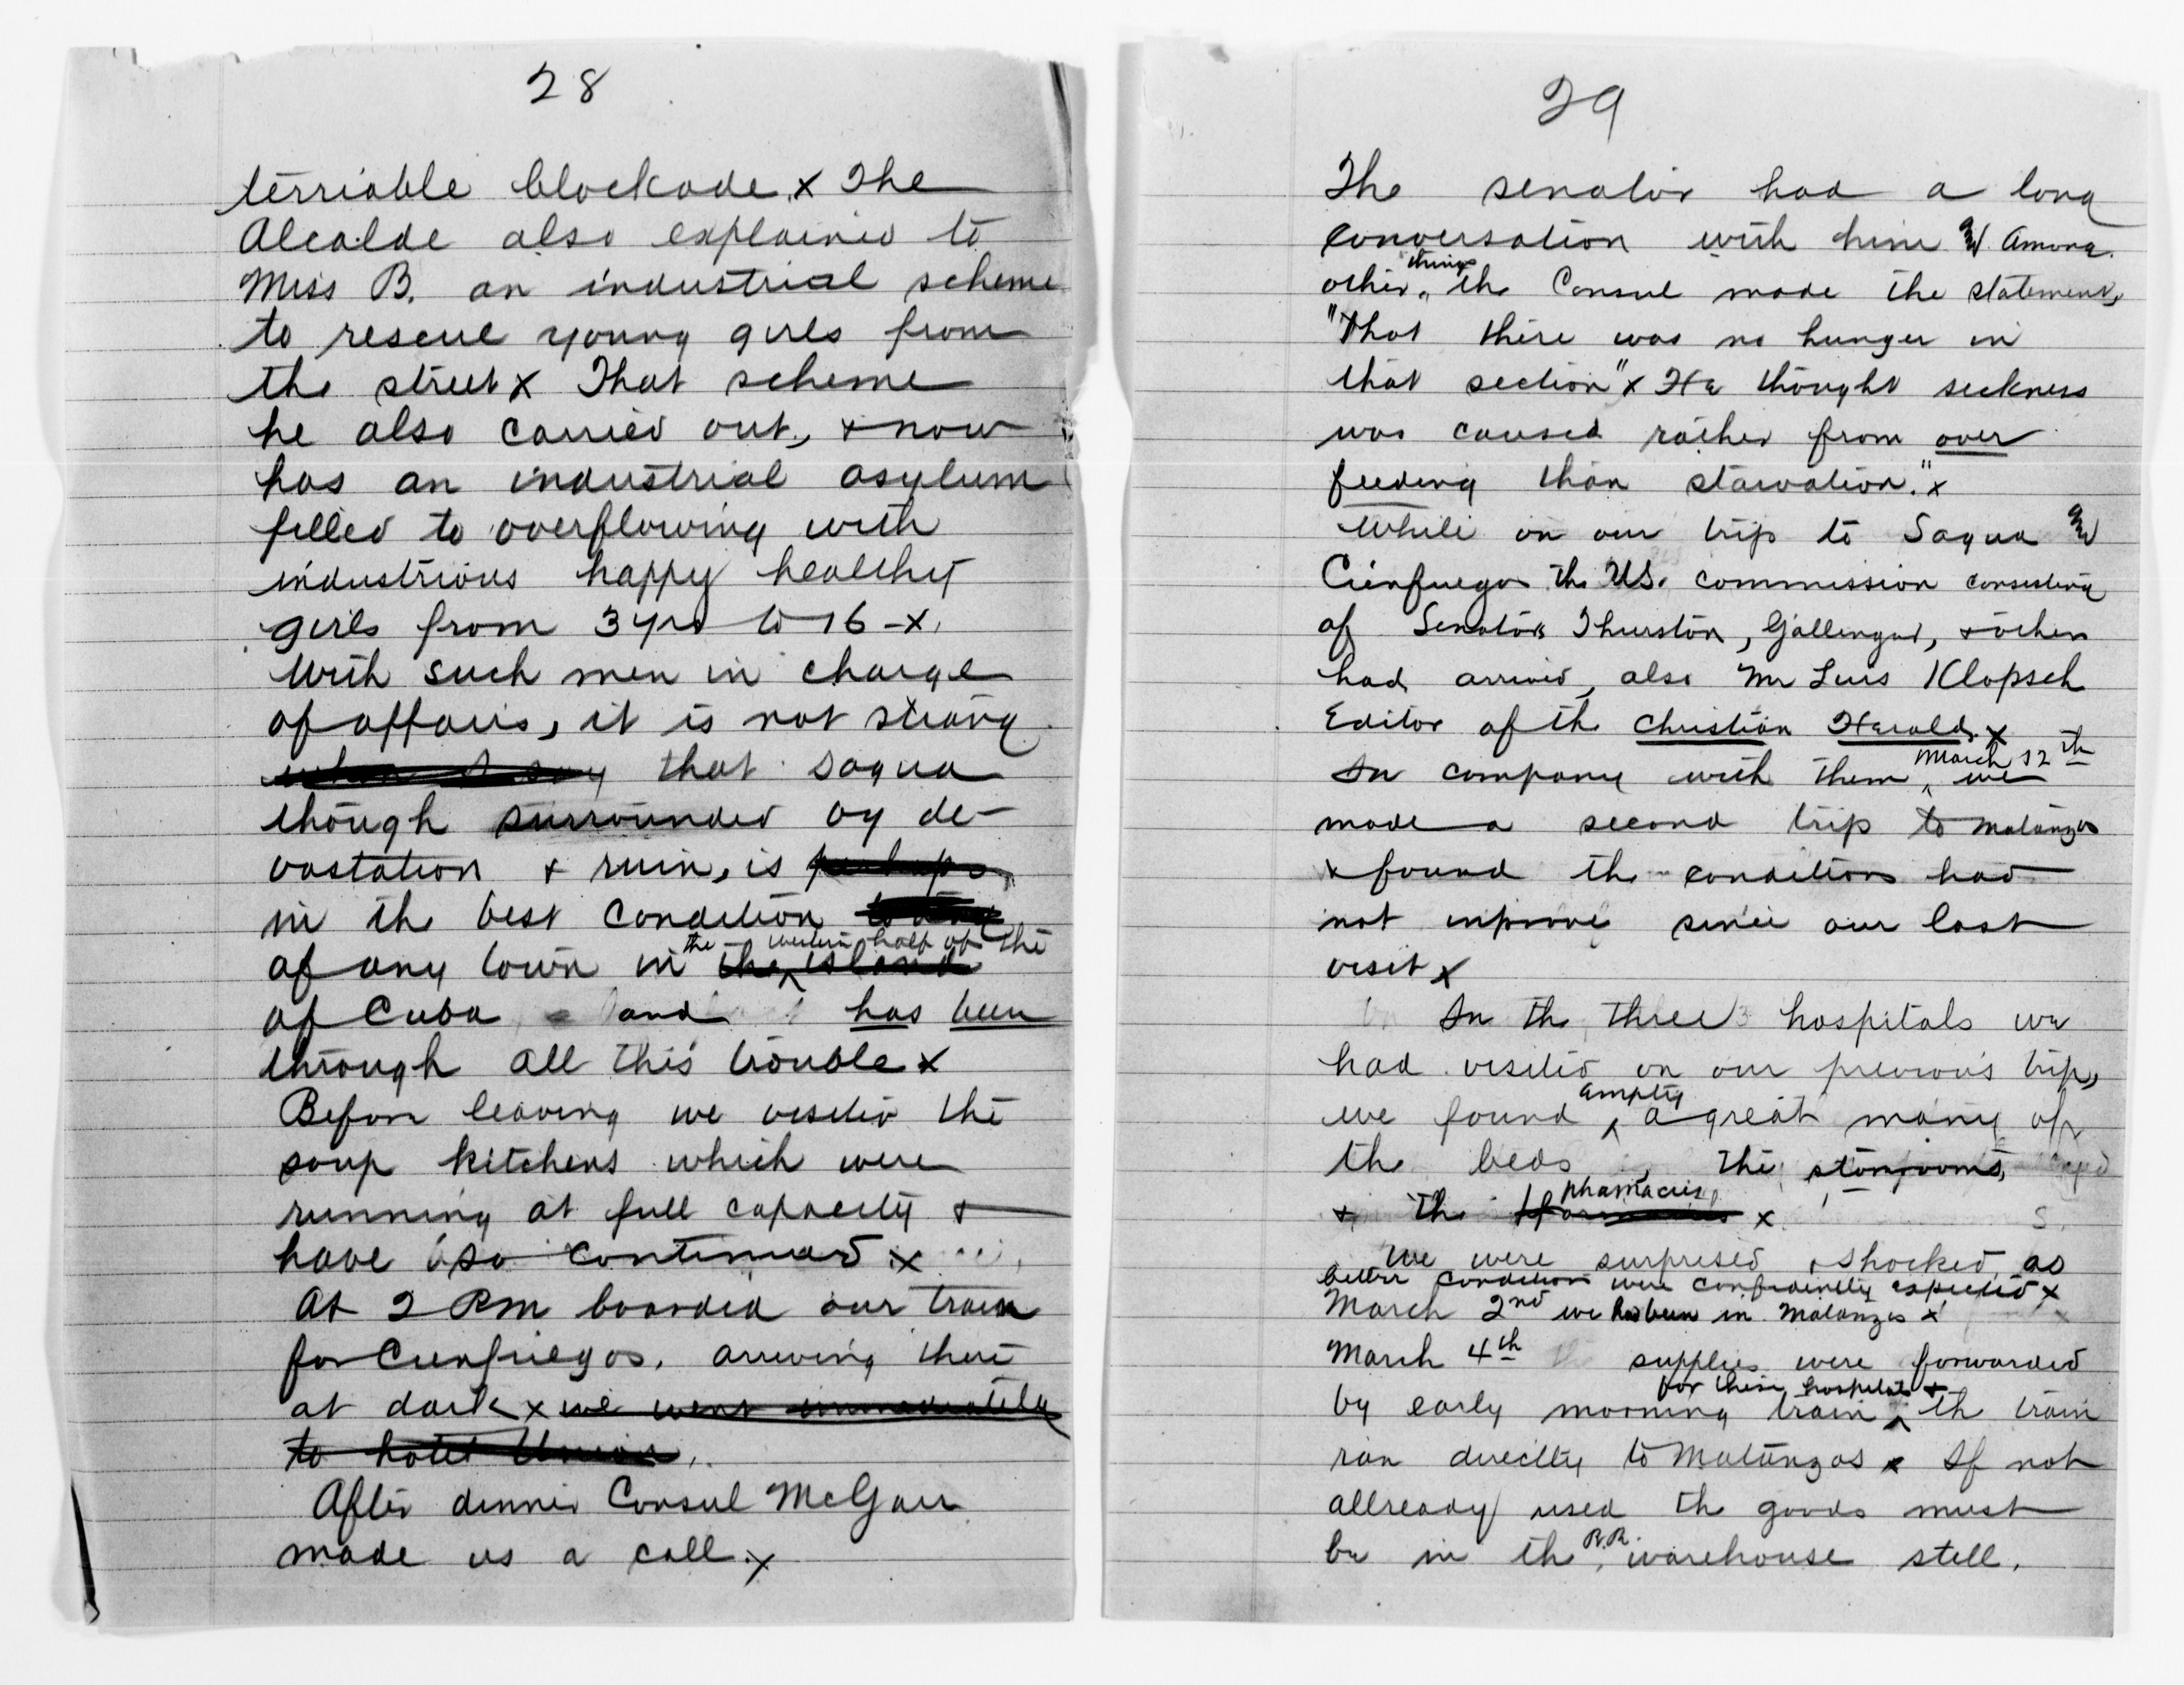 28
terriable blockade. x The
Alcalde also explained to
Miss B. an industrial scheme
to rescue young girls from
the street x That scheme
he also carried out, + now
has an industrial asylum
filled to overflowing with
industrious happy healthy
girls from 3 yrs to 16 - x.
With such men in charge
of affairs, it is not strang
when I say that Sagua
though surrounded by de-
vastation + ruin, is perhaps
in the best condition
the western half of the
of any town in the island
of Cuba and has been
through all this trouble x
Before leaving we visited the
soup kitchens which were
running at full capacity +
have so continued x
At 2 PM boarded our train
for Cienfuegos. arriving there
at dark x we went immediately
to hotel Union.
After dinner Consul McGarr
made us a call. x
29
The senator had a long
conversation with him & Among
things
other, the Consul made the statement,
"That there was no hunger in
that section" x He thought sickness
was caused rather from over
feeding than starvation." x
While on our trip to Sagua &
Cienfuegos the U.S. commission consisting
of Senators Thurston, Gallenger, + others
had arrived, also Mr Luis Klopsch
Editor of the Christian Herald. x
March 12th
In company with them, we
made a second trip to Matanzas
+ found the conditions had
not improved since our last
visit x
In the three hospitals we
had visited on our previous trip,
empty
we found a great many of
the beds, the storerooms,
pharmacies
+ the x
We were surprised + shocked, as
better condition were confidently expected x
March 2nd we had been in Matanzas x
March 4th supplies were forwarded
for these hospitals +
by early morning train, the train
ran directly to Matanzas x If not
allready used the goods must
R.R.
be in the warehouse still.